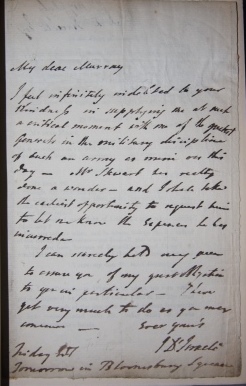 My dear Murray
I feel infinitely indebted to your
kindness in supplying me at such
a critical moment with one of the greatest
Generals in the military discipline
of such an army as mine was this
day — Mr Stewart has really
done a wonder — and I shall take
the earliest opportunity to request him
to let me know the expences he has
incurred.
I can scarcely hold my pen
to assure you of my great obligation
to you in particular — I have
yet very much to do as you may
conceive — Ever yours
I D'Israeli
Friday
Tomorrow in Bloomsbury Square